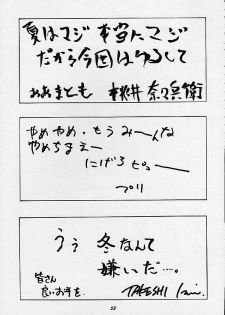 夏はマジ 本当にマジ
だから今回はゆるして
おおまとも 桃井 奈々兵衛
やめやめ・もうみーんな
やめちまえー
にげろピュー
プリ
うぅ 冬なんて
嫌いだ…。
皆さん
良いお年を。
TAKESHI
53